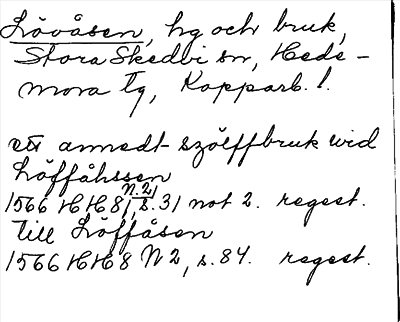 Lövåsen, hg och bruk,
Stora Skedvi sn, Hede-
mora tg, Kopparb. l.
ett annedt szölffbruk wid
Löffåhssen
1566 HH8, N. 2, s. 31 not 2. regest.
till Löffåsen
1566 HH8 N 2, s. 84. regest.